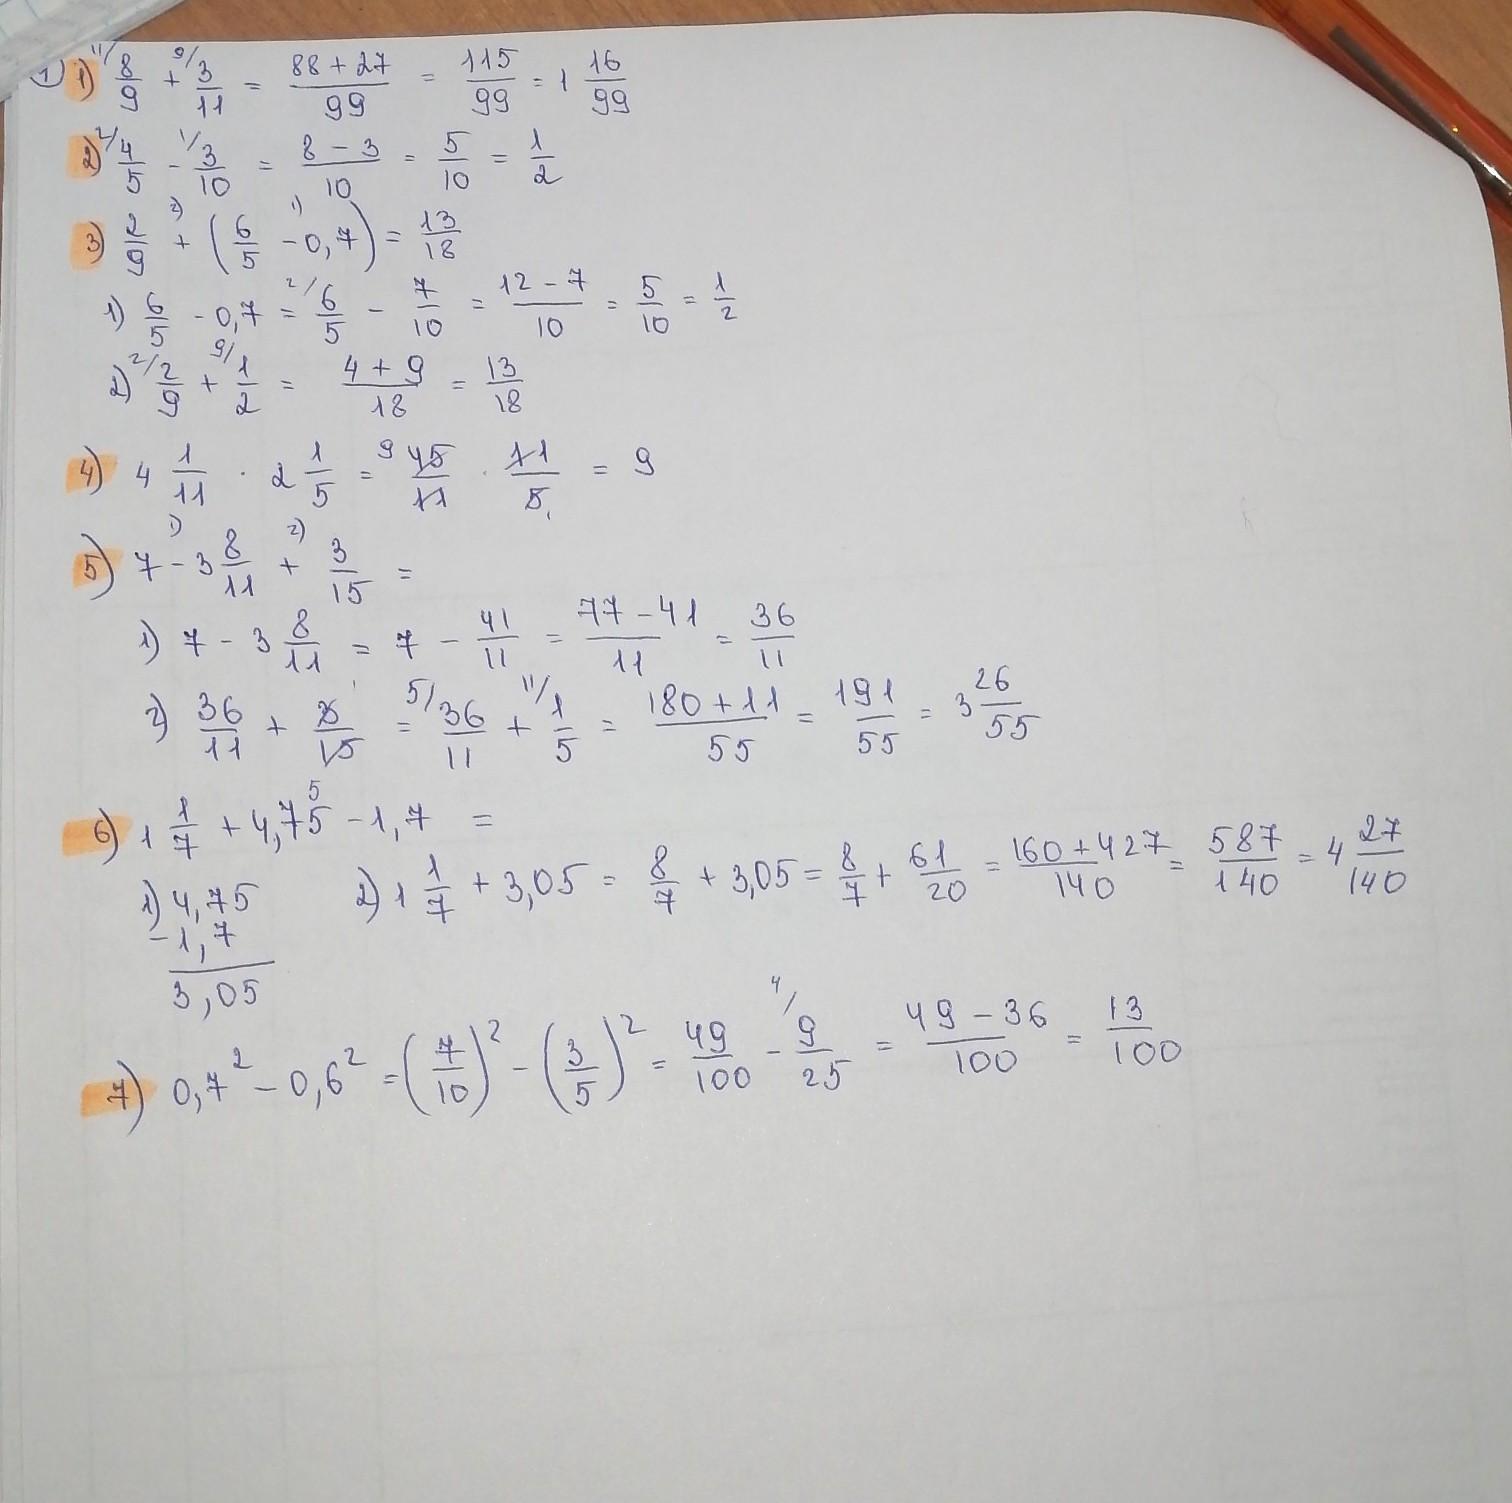 1) 1) 11/ 8/9 + 9/ 3/11 = (88 + 27)/99 = 115/99 = 1 16/99
2) 2/ 4/5 - 1/ 3/10 = (8 - 3)/10 = 5/10 = 1/2
3) 2/9 +²⁾ (6/5 -¹⁾ 0,7) = 13/18
1) 6/5 - 0,7 = 2/ 6/5 - 7/10 = (12 - 7)/10 = 5/10 = 1/2
2) 2/ 2/9 + 9/ 1/2 = (4 + 9)/18 = 13/18
4) 4 1/11 · 2 1/5 = 9 45/11 · 11/5 1 = 9
5) 7 -¹⁾ 3 8/11 +²⁾ 3/15 =
1) 7 - 3 8/11 = 7 - 41/11 = (77 - 41)/11 = 36/11
2) 36/11 + 3 1/15 = 5/ 36/11 + 11/ 1/5 = (180 + 11)/55 = 191/55 = 3 26/55
6) 1 1/7 + 4,75 5 - 1,7 =
1) 4,75
- 1,7
3,05
2) 1 1/7 + 3,05 = 8/7 + 3,05 = 8/7 + 61/20 = (160 + 427)/140 = 587/140 = 4 27/140
7) 0,7² - 0,6² = (7/10)² - (3/5)² = 49/100 - 4/ 9/25 = (49 - 36)/100 = 13/100